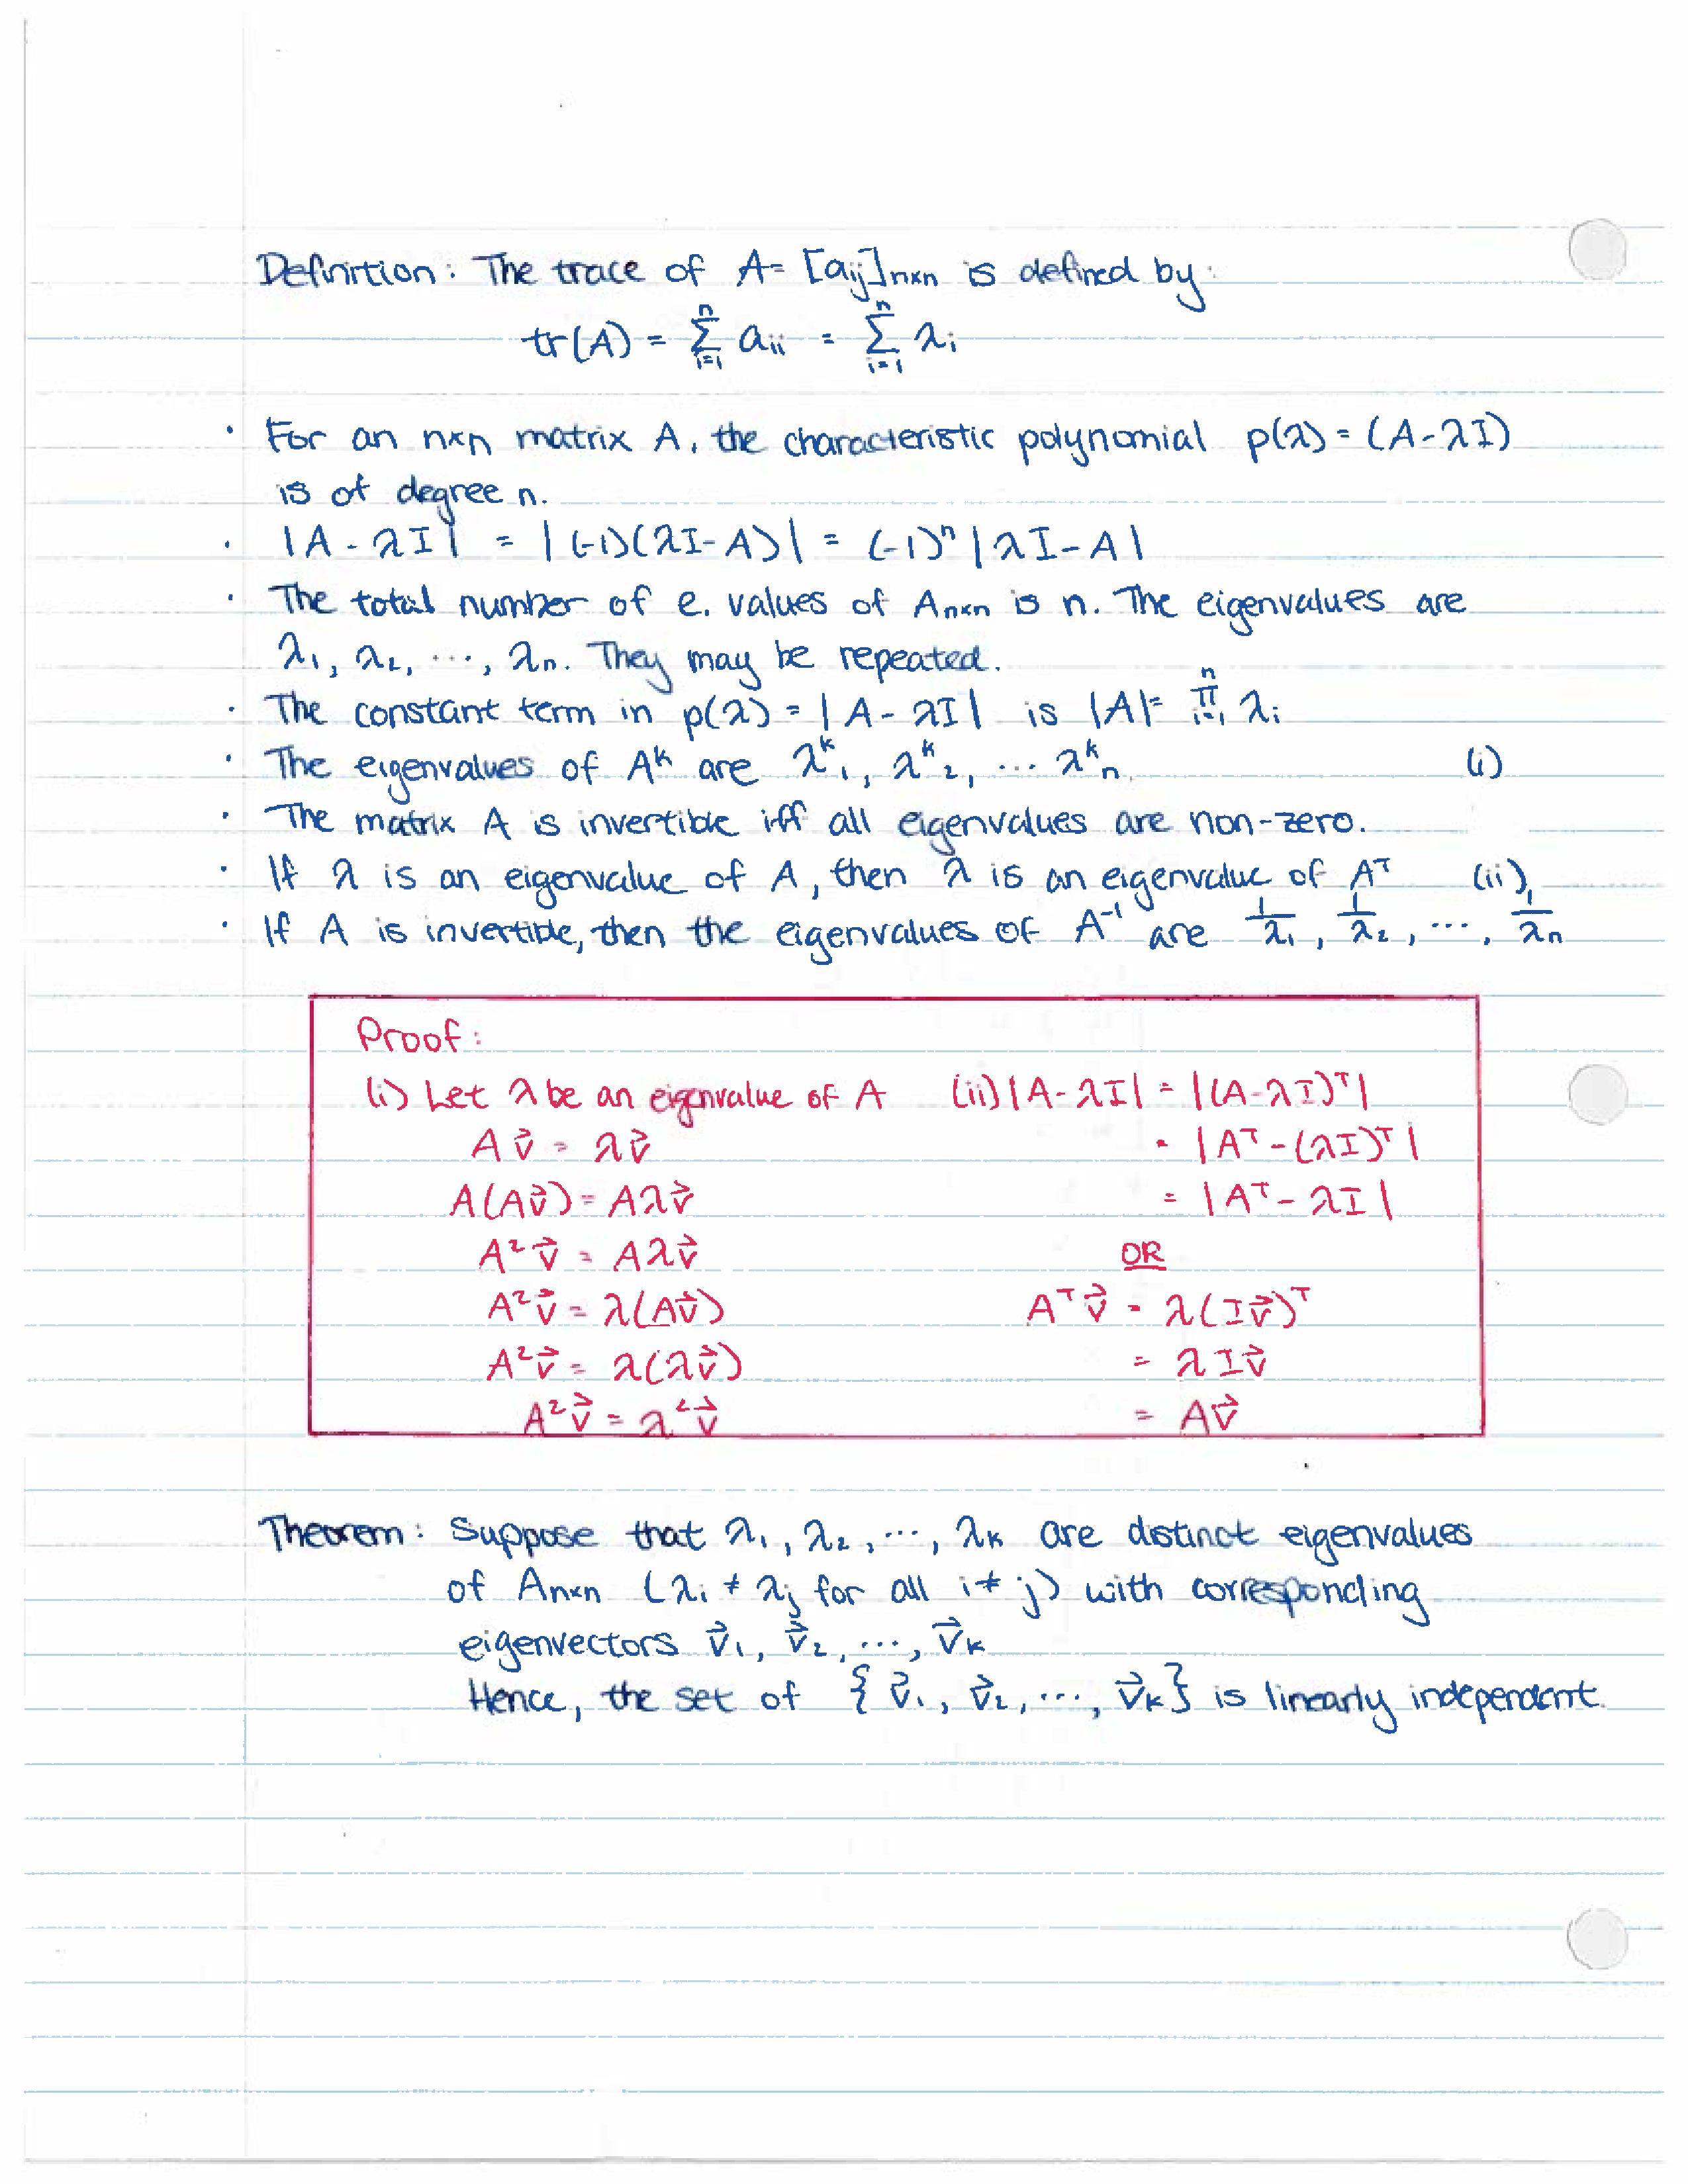 Definition: The trace of A = [aij]nxn is defined by:
tr(A) = Σ_{i=1}^{n} aii = Σ_{i=1}^{n} λi
· For an nxn matrix A, the characteristic polynomial p(λ) = (A-λI)
is of degree n.
· |A - λI| = |(-1)(λI-A)| = (-1)ⁿ |λI-A|
· The total number of e. values of Anxn is n. The eigenvalues are
λ₁, λ₂, ..., λn. They may be repeated.
· The constant term in p(λ) = |A - λI| is |A| = Π_{i=1}^{n} λi
· The eigenvalues of Aᵏ are λᵏ₁, λᵏ₂, ... λᵏn. (i)
· The matrix A is invertible iff all eigenvalues are non-zero.
· If λ is an eigenvalue of A, then λ is an eigenvalue of Aᵀ (ii)
· If A is invertible, then the eigenvalues of A⁻¹ are 1/λ₁, 1/λ₂, ..., 1/λn
Proof:
(i) Let λ be an eigenvalue of A
Av⃗ = λv⃗
A(Av⃗) = Aλv⃗
A²v⃗ = Aλv⃗
A²v⃗ = λ(Av⃗)
A²v⃗ = λ(λv⃗)
A²v⃗ = λ²v⃗
(ii) |A-λI| = |(A-λI)ᵀ|
= |Aᵀ - (λI)ᵀ|
= |Aᵀ - λI|
OR
Aᵀv⃗ = λ(Iv⃗)ᵀ
= λIv⃗
= Av⃗
Theorem: Suppose that λ₁, λ₂, ..., λk are distinct eigenvalues
of Anxn (λi ≠ λj for all i ≠ j) with corresponding
eigenvectors v⃗₁, v⃗₂, ..., v⃗k
Hence, the set of {v⃗₁, v⃗₂, ..., v⃗k} is linearly independent.